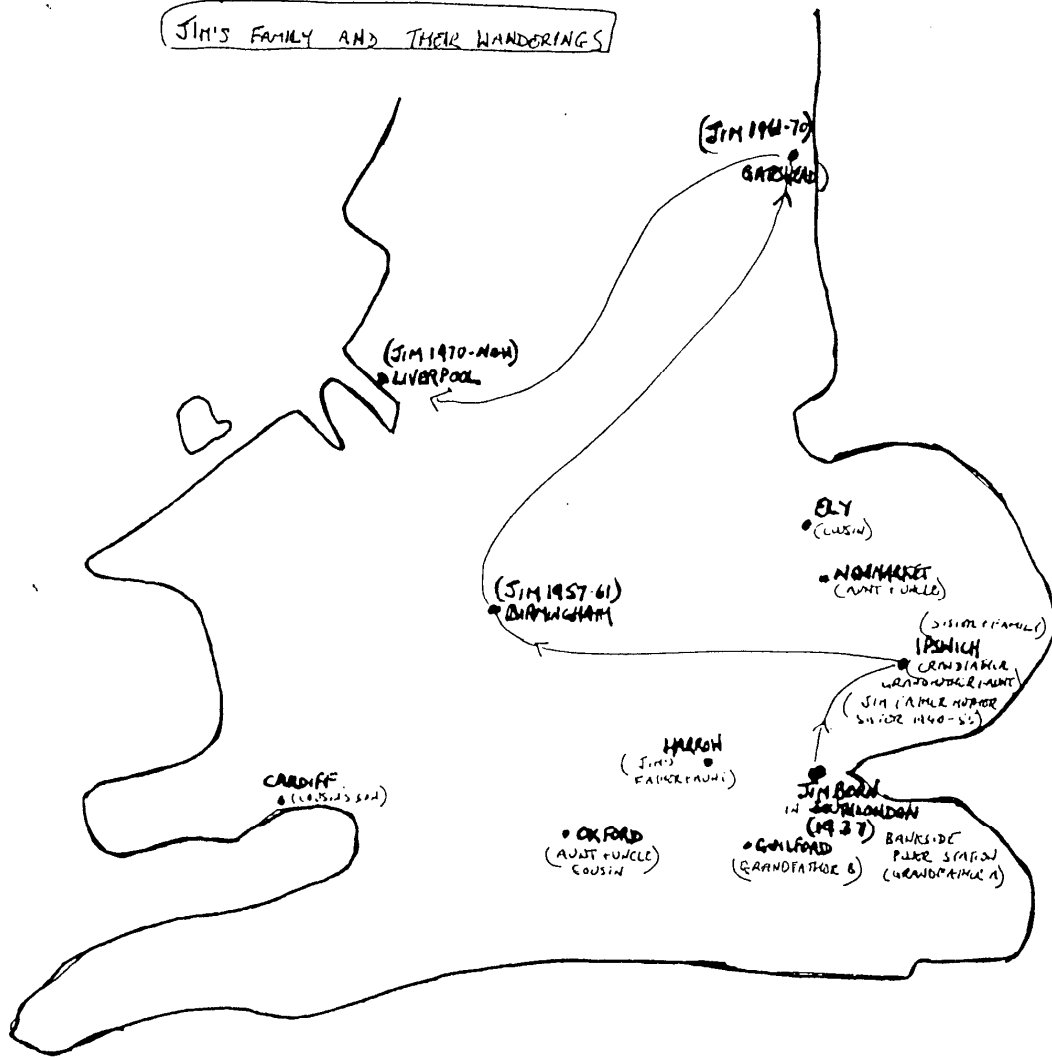 JIM'S FAMILY AND THEIR WANDERINGS
(JIM 1961-70)
GATESHEAD
(JIM 1970-NOW)
LIVERPOOL
ELY
(COUSIN)
NEWMARKET
(AUNT + UNCLE)
(JIM 1957-61)
BIRMINGHAM
(SISTER + FAMILY)
IPSWICH
GRANDFATHER
GRANDMOTHER + AUNT
(JIM FATHER MOTHER
SISTER 1940-55)
HARROW
(JIM'S
FATHER + AUNT)
CARDIFF
(COUSIN'S SON)
JIM BORN
IN SOUTH LONDON
(1937)
OXFORD
(AUNT + UNCLE)
COUSIN
GUILFORD
(GRANDFATHER B)
BANKSIDE
POWER STATION
(GRANDFATHER A)